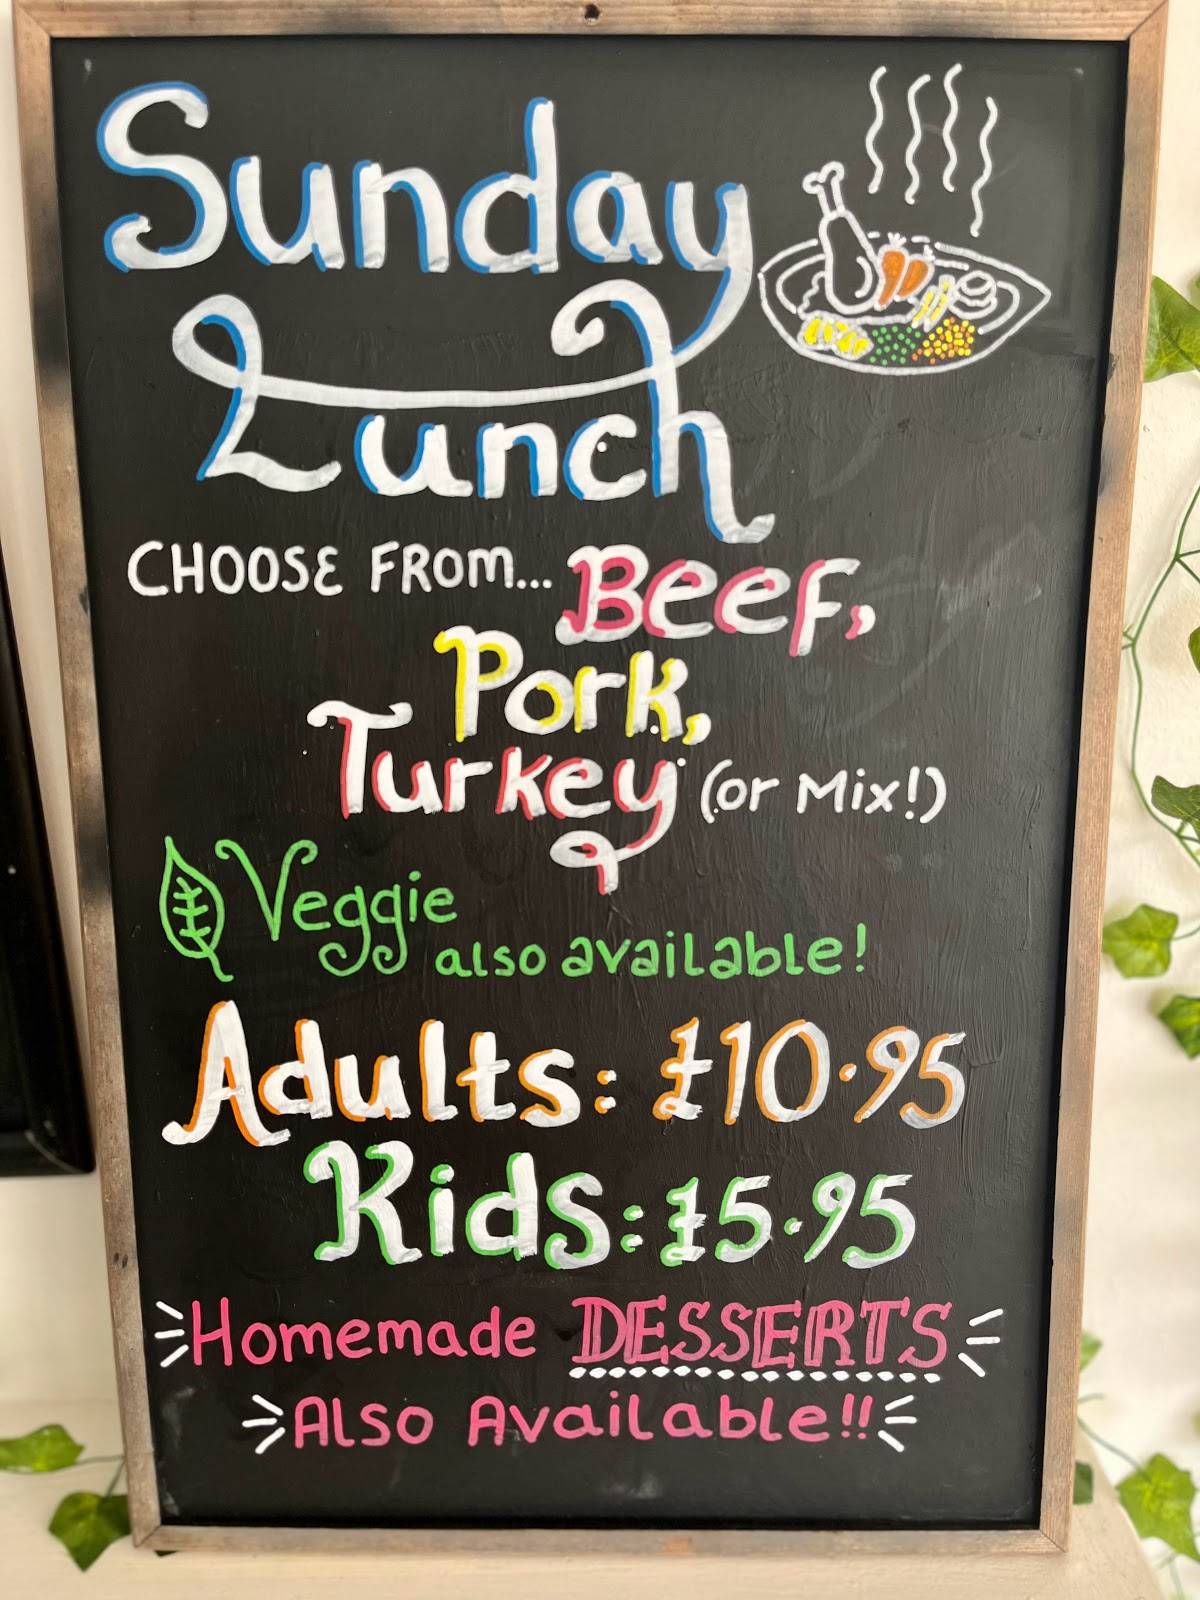 Sunday
Lunch
CHOOSE FROM... Beef,
Pork,
Turkey (or Mix!)
Veggie
also available!
Adults: £10.95
Kids: £5.95
Homemade DESSERTS
Also Available!!